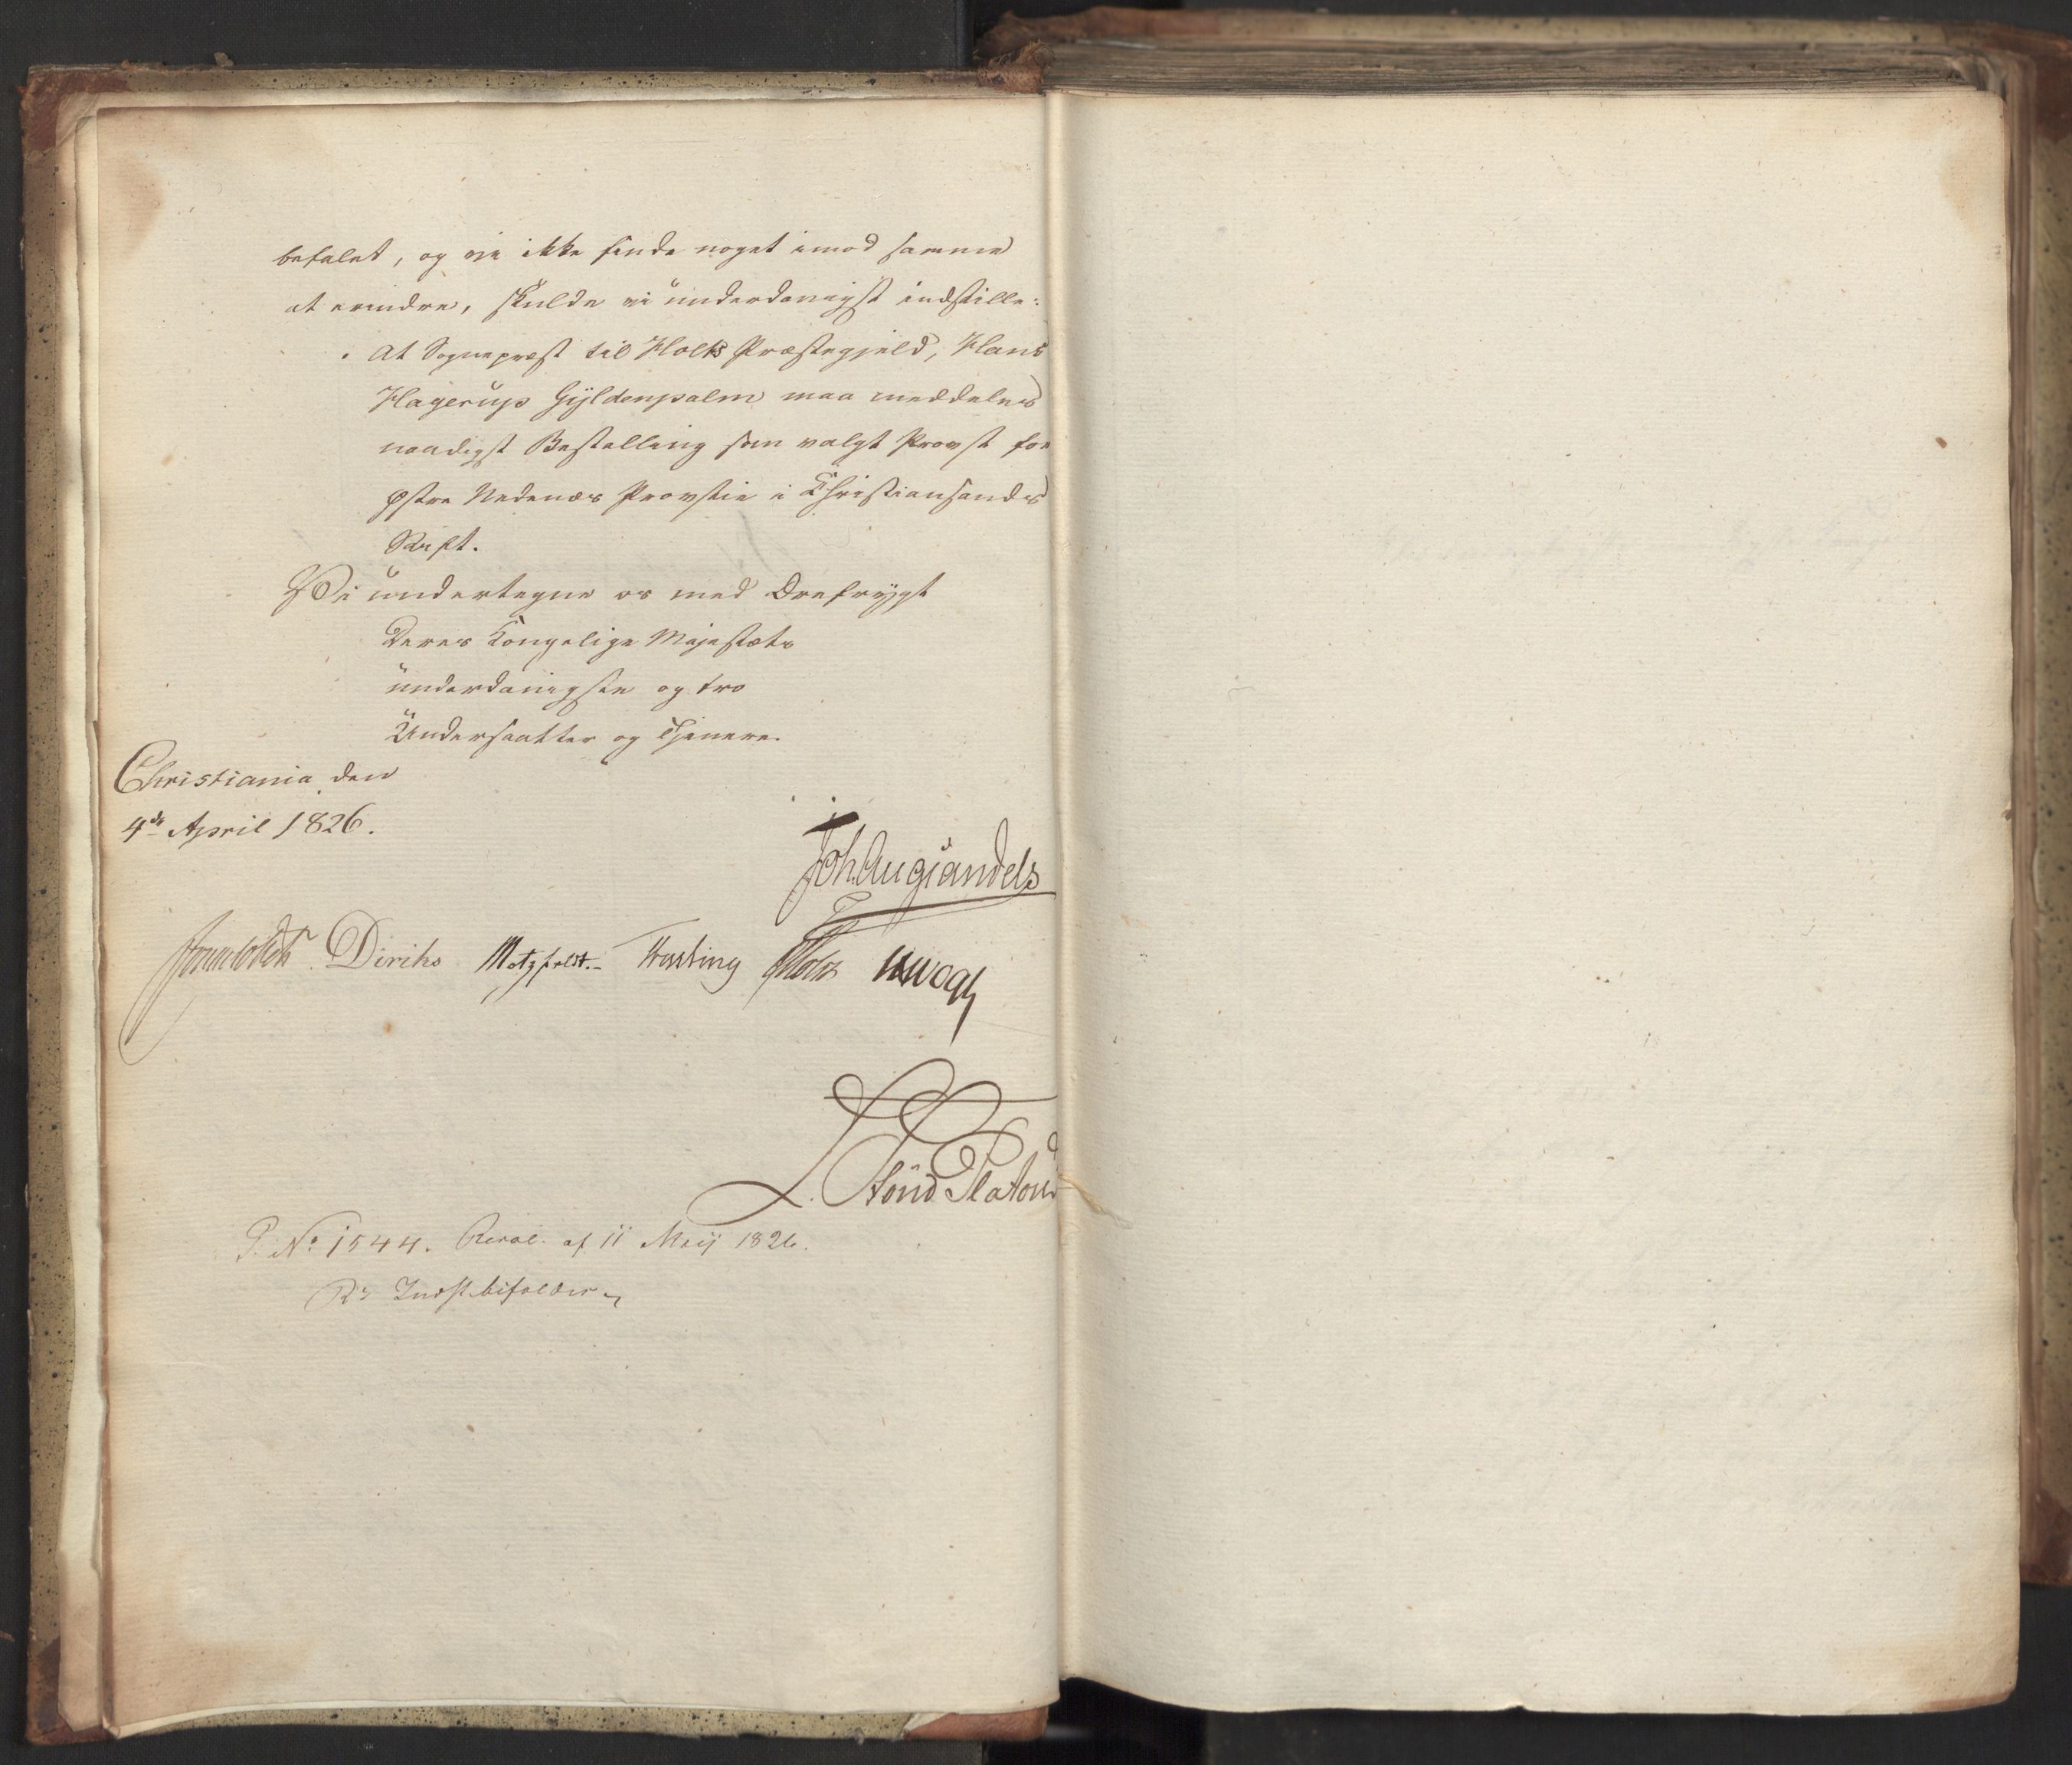 befalet, og vi ikke finde noget imod samme
at erindre, skulde vi underdanigst indstille:
At Sognepræst til Holts Præstegjeld, Hans
Hagerup Gyldenpalm maa meddeles
naadigst Bestalling som valgt Provst for
Østre Nedenæs Provstie i Christiansands
Stift.
Vi undertegne os med Ærefrygt
Deres Kongelige Majestæts
underdanigste og tro
Undersaatter og Tjenere.
Christiania den
4de April 1826.
Joh. Aug Sandels
Sommerhielm Diriks Motzfeldt. Fasting Holst UVogt
L. Stoud Platou
P. No 1544. Resol. af 11 Maij 1826.
Rs Indst. bifaldes